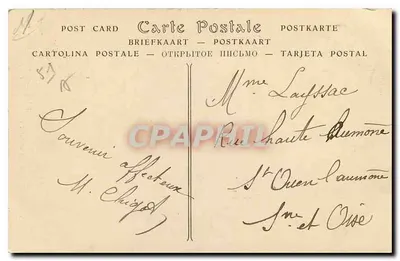 POST CARD Carte Postale POSTKARTE
BRIEFKAART — POSTKAART
CARTOLINA POSTALE — ОТКРЫТОЕ ПИСЬМО — TARJETA POSTAL
51
Souvenir
affectueux
M. Chigot
Mme Layssac
Rue haute Aumône
St Ouen l'aumône
Sne et Oise
CPARAMA